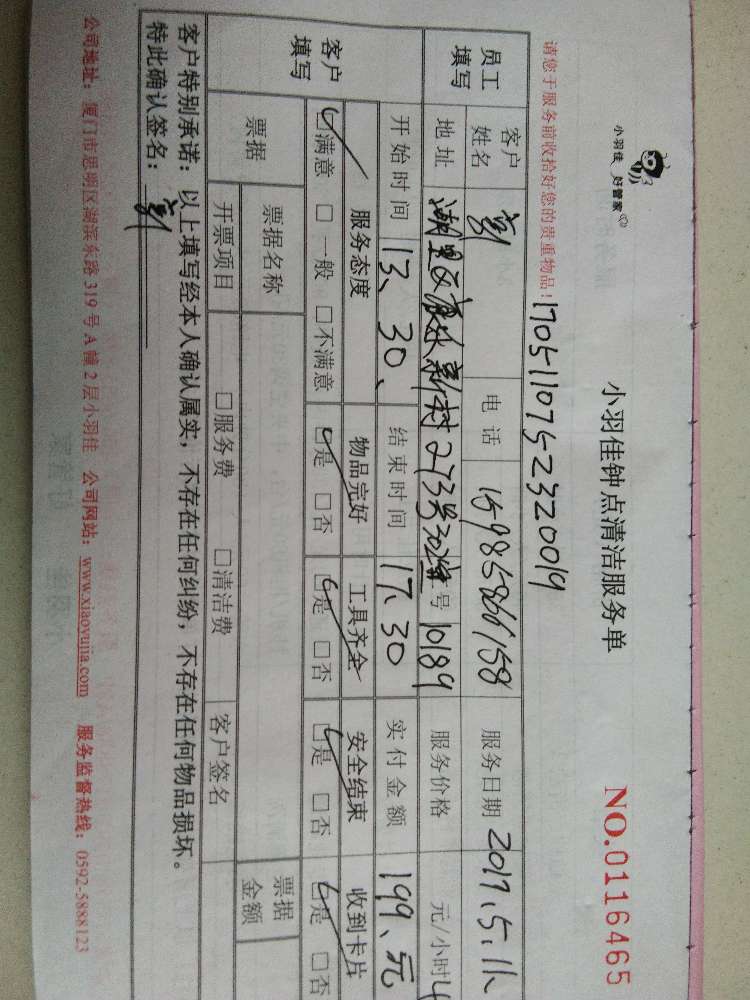 小羽佳 好管家
小羽佳钟点清洁服务单
NO.0116465
1705110752320019
请您于服务前收拾好您的贵重物品!
员工填写
客户姓名
电话 15985866158
服务日期 2017.5.11
地址
新村273号
号 10189
服务价格
元/小时
客户填写
开始时间 13、30、
结束时间 17、30
实付金额 199、元
服务态度 物品完好 工具齐全 安全结束 收到卡片
☑满意 □一般 □不满意 ☑是 □否 ☑是 □否 ☑是 □否 ☑是 □否
票据
票据名称
票据金额
开票项目 □服务费 □清洁费 客户签名
客户特别承诺:以上填写经本人确认属实,不存在任何纠纷,不存在任何物品损坏。
特此确认签名:
公司地址:厦门市思明区湖滨东路319号A幢2层小羽佳 公司网站:www.xiaoyujia.com 服务监督热线:0592-5888123